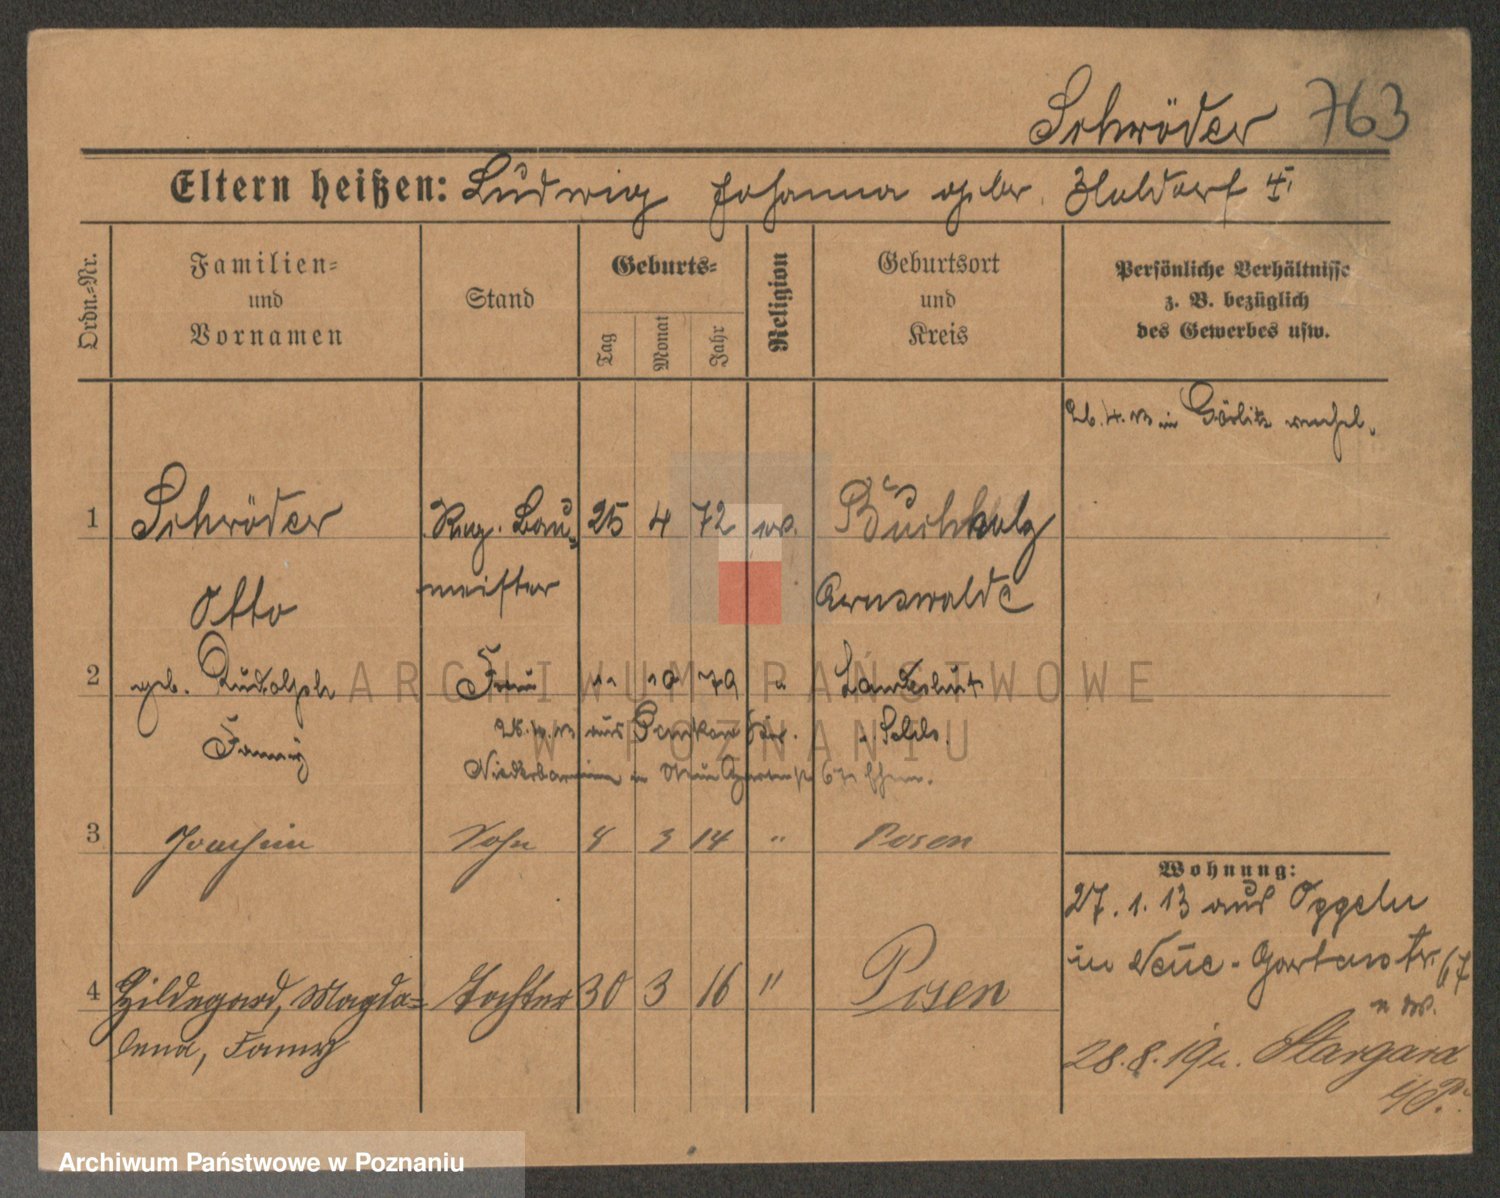 Schröder 763
Eltern heißen: Ludwig Johanna geb.
Ordn.-Nr.
Familien-
und
Vornamen
Stand
Geburts-
Tag
Monat
Jahr
Religion
Geburtsort
und
Kreis
Persönliche Verhältnisse
z. B. bezüglich
des Gewerbes usw.
in Görlitz
1 Schröder Reg. Bau- 25 4 72 ev. Buchholz
Otto meister Arnswalde
2 geb. Rudolph Frau 79 " Landeshut
Fanny aus " Schles.
Niederbarnim
3 Joachim Sohn 8 3 14 " Posen
Wohnung:
27. 1. 13 aus Oppeln
in Neue-Gartenstr. 67
4 Hildegard, Magda- Tochter 30 3 16 " Posen
lena, Fanny
28.8.19 n. Stargard
i/P.
ARCHIWUM PAŃSTWOWE
W POZNANIU
Archiwum Państwowe w Poznaniu